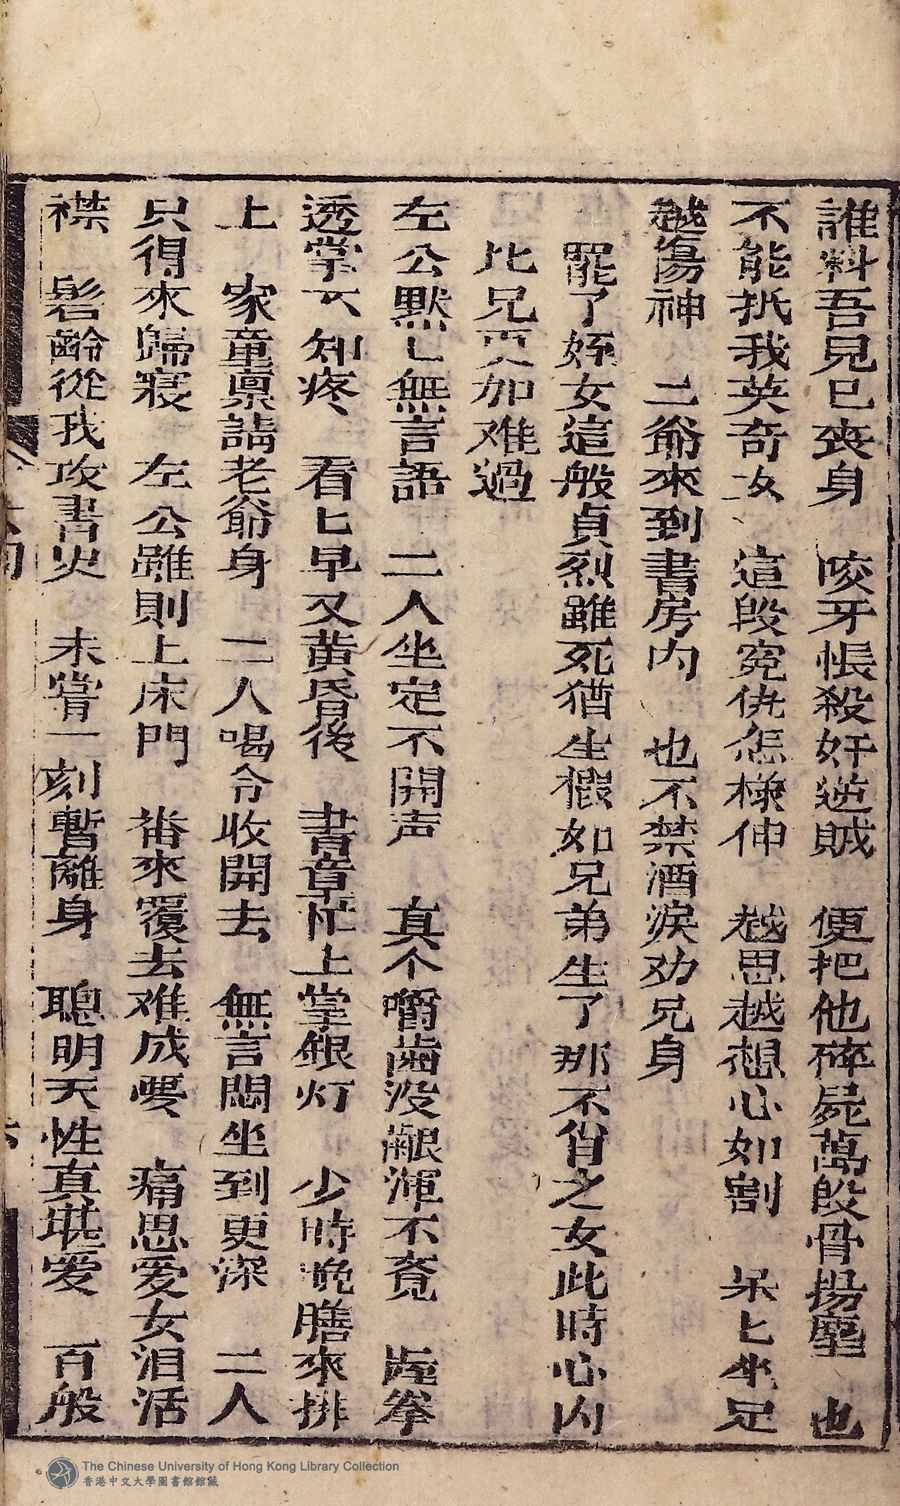 誰料吾兒已丧身　咬牙恨殺奸逆賊　便把他碎屍萬段骨揚塵　也
不能抵我英奇女　這段寃仇怎様伸　越思越想心如割　呆匕坐足
越傷神　二爺來到書房内　也不禁洒淚劝兄身
罷了姪女這般貞烈雖死猶生假如兄弟生了那不肖之女此時心内
比兄更加难過
左公黙匕無言語　二人坐定不開声　真个嚼歯没齦渾不覔　握拳
透掌不知疼　看匕早又黄昏後　書童忙上掌銀灯　少時晚膳來排
上　家童禀請老爺身　二人喝令收開去　無言悶坐到更深　二人
只得來歸寝　左公雖則上床門　番來覆去难成夢　痛思爱女泪活
襟　髫齡從我攻書史　未嘗一刻暫離身　聰明天性真堪爱　百般
The Chinese University of Hong Kong Library Collection
香港中文大學圖書館館藏